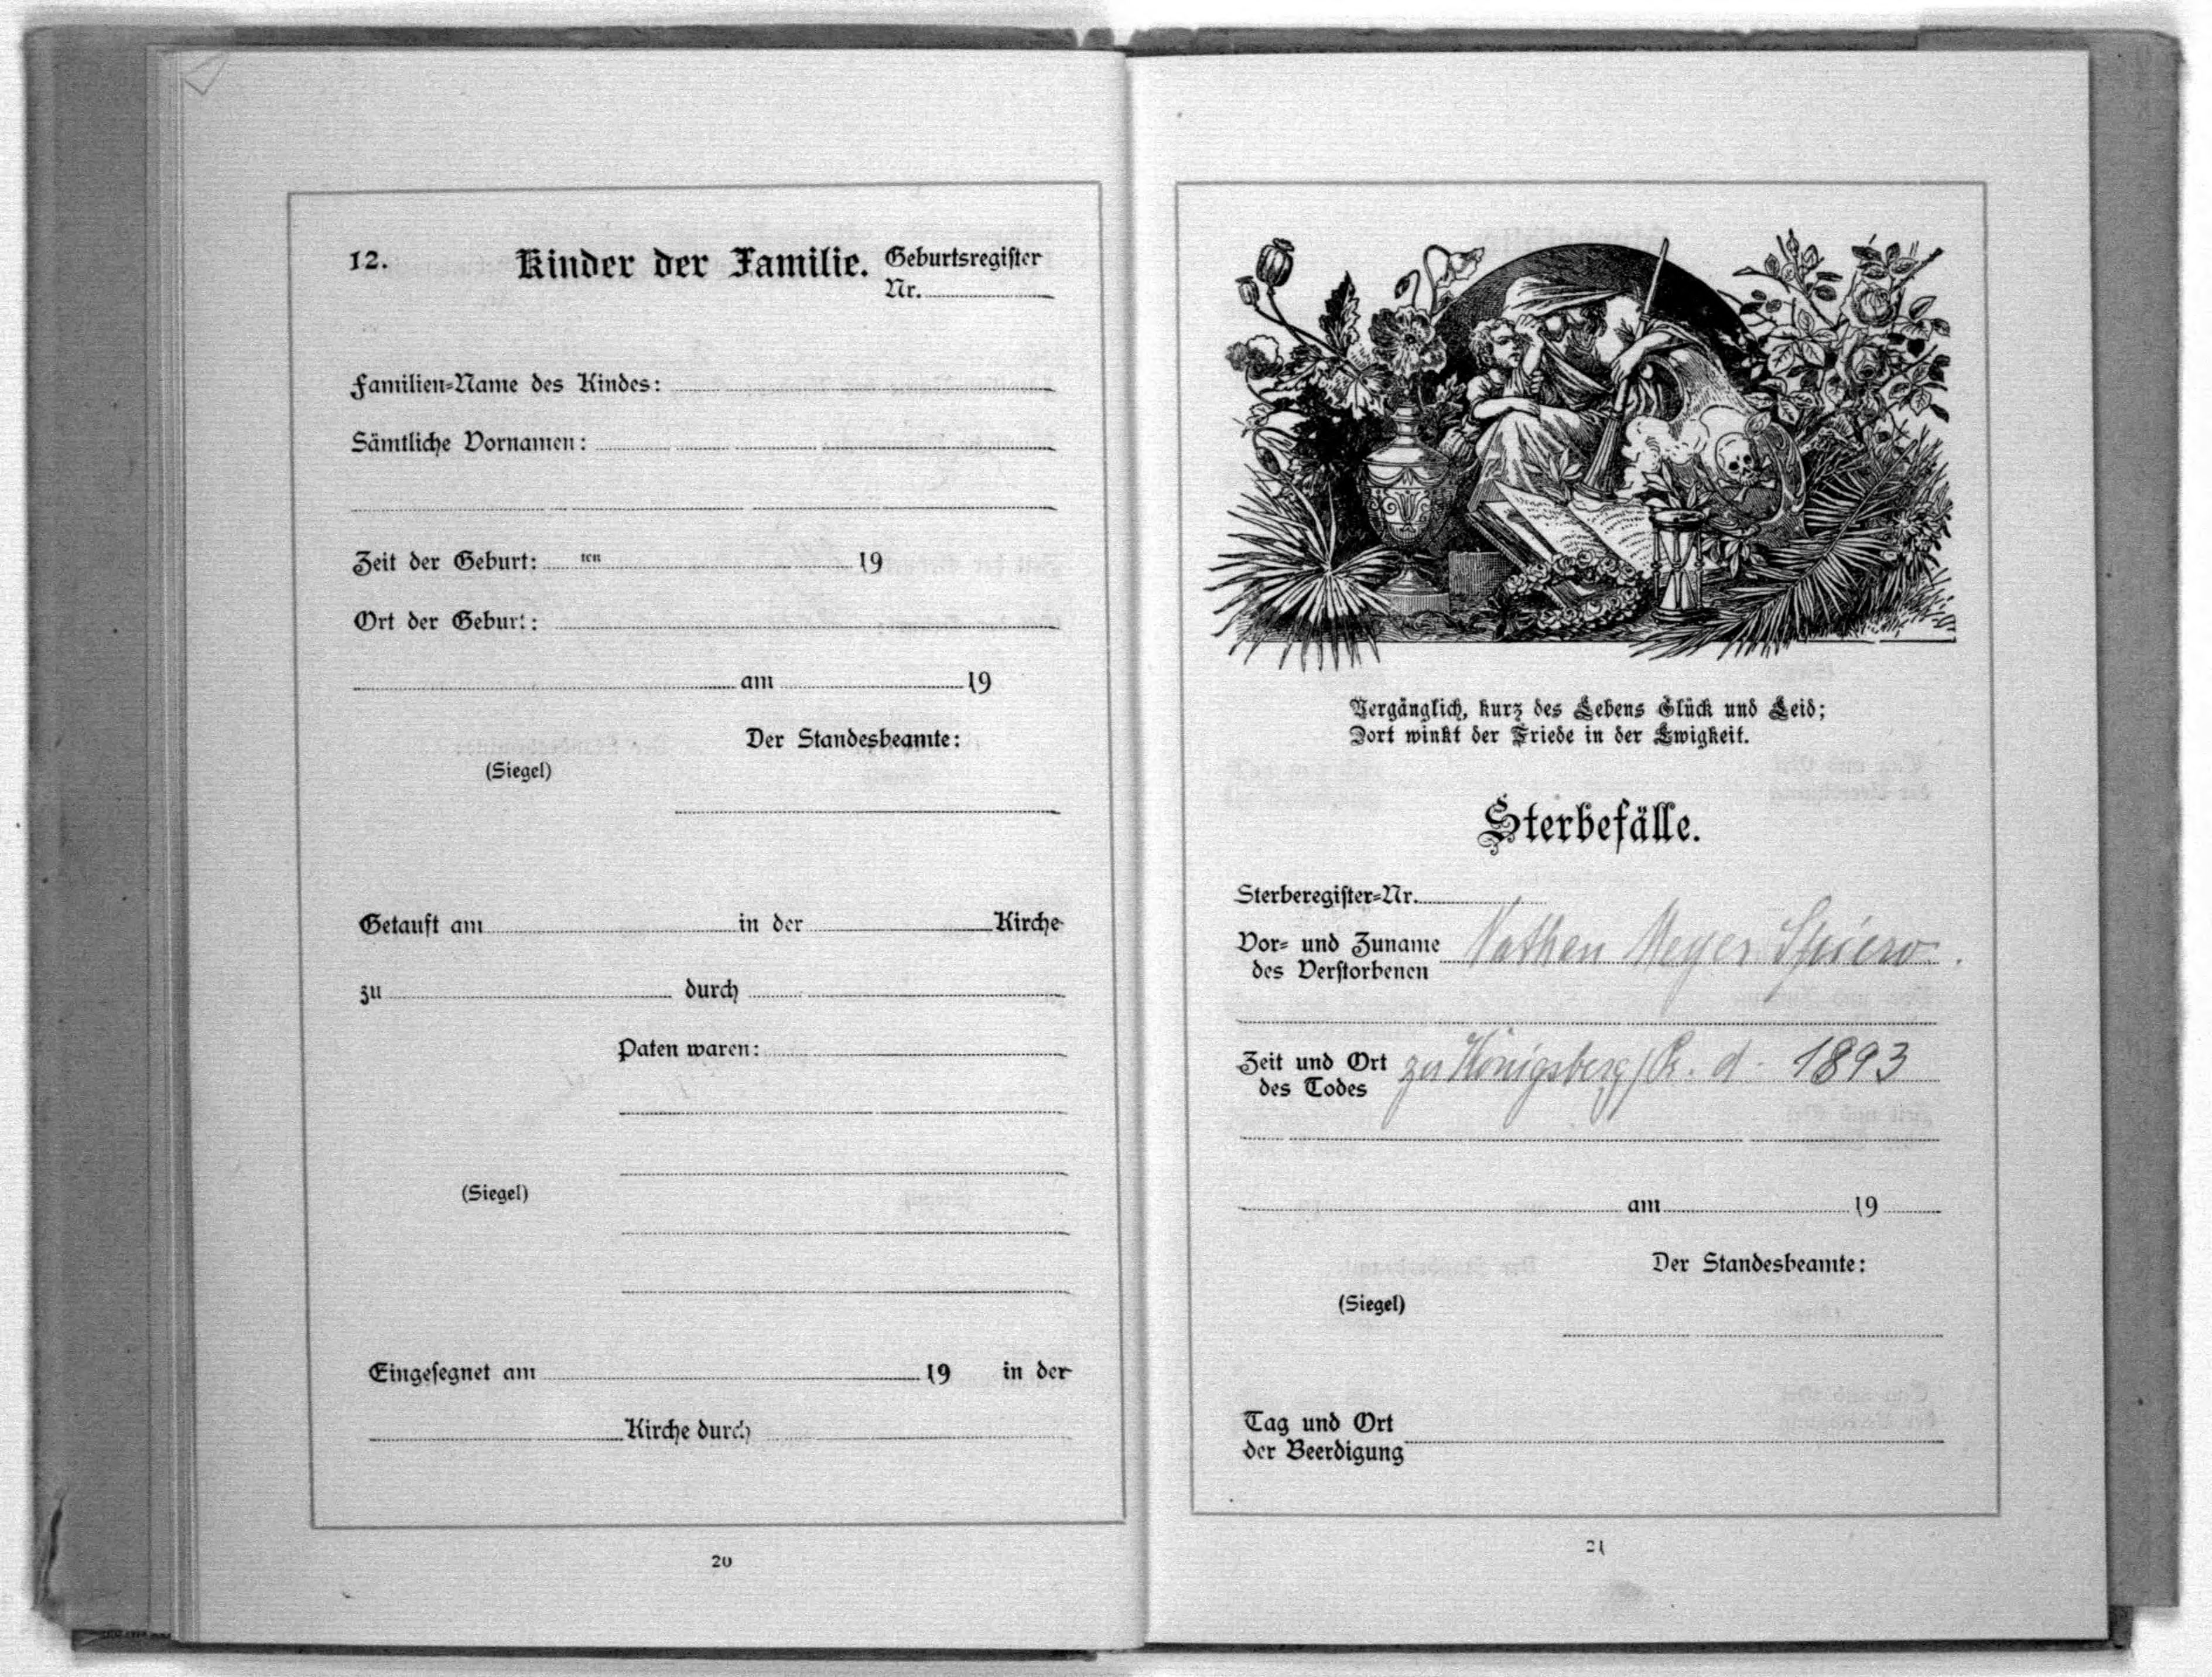 12. Kinder der Familie. Geburtsregister
Nr.
Familien-Name des Kindes:
Sämtliche Vornamen:
Zeit der Geburt: ten 19
Ort der Geburt:
am 19
Der Standesbeamte:
(Siegel)
Getauft am in der Kirche
zu durch
Paten waren:
(Siegel)
Eingesegnet am 19 in der
Kirche durch
20
Vergänglich, kurz des Lebens Glück und Leid;
Dort winkt der Friede in der Ewigkeit.
Sterbefälle.
Sterberegister-Nr.
Vor- und Zuname
des Verstorbenen
Nathan Meyer Spiero.
Zeit und Ort
des Todes
zu Königsberg/Pr. d. 1893
am 19
Der Standesbeamte:
(Siegel)
Tag und Ort
der Beerdigung
21